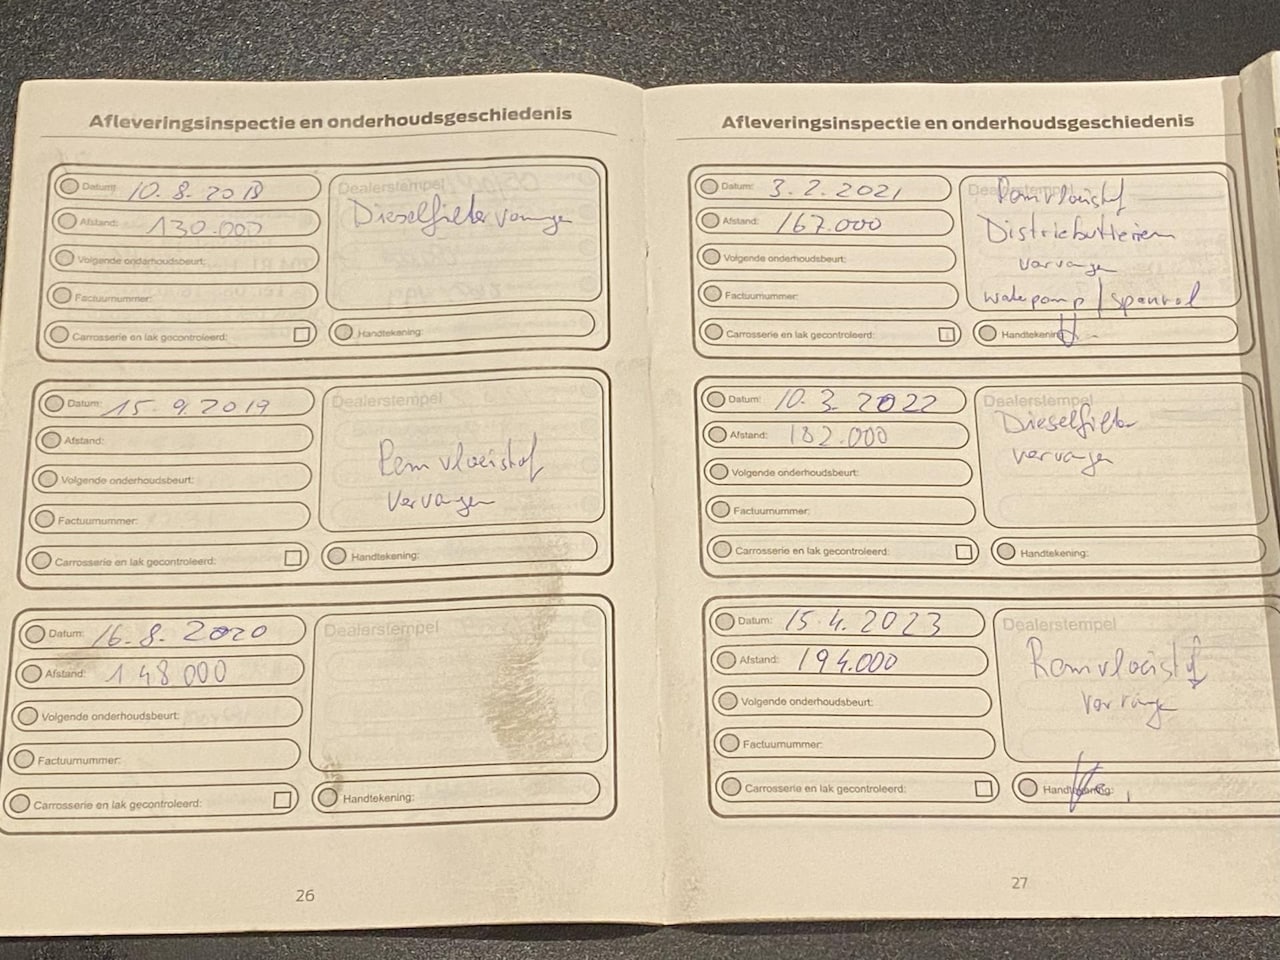 Afleveringsinspectie en onderhoudsgeschiedenis
Datum: 10.8.2018
Afstand: 130.000
Volgende onderhoudsbeurt:
Factuurnummer:
Carrosserie en lak gecontroleerd:
Dealerstempel
Dieselfilter vervangen
Handtekening:
Datum: 15.9.2019
Afstand:
Volgende onderhoudsbeurt:
Factuurnummer:
Carrosserie en lak gecontroleerd:
Dealerstempel
Remvloeistof
vervangen
Handtekening:
Datum: 16.8.2020
Afstand: 148000
Volgende onderhoudsbeurt:
Factuurnummer:
Carrosserie en lak gecontroleerd:
Dealerstempel
Handtekening:
26
Afleveringsinspectie en onderhoudsgeschiedenis
Datum: 3.2.2021
Afstand: 167.000
Volgende onderhoudsbeurt:
Factuurnummer:
Carrosserie en lak gecontroleerd:
Dealerstempel
Remvloeistof
Distributieriem
vervangen
waterpomp / spanrol
Handtekening:
Datum: 10.3.2022
Afstand: 182.000
Volgende onderhoudsbeurt:
Factuurnummer:
Carrosserie en lak gecontroleerd:
Dealerstempel
Dieselfilter
vervangen
Handtekening:
Datum: 15.4.2023
Afstand: 194.000
Volgende onderhoudsbeurt:
Factuurnummer:
Carrosserie en lak gecontroleerd:
Dealerstempel
Remvloeistof
vervangen
Handtekening:
27